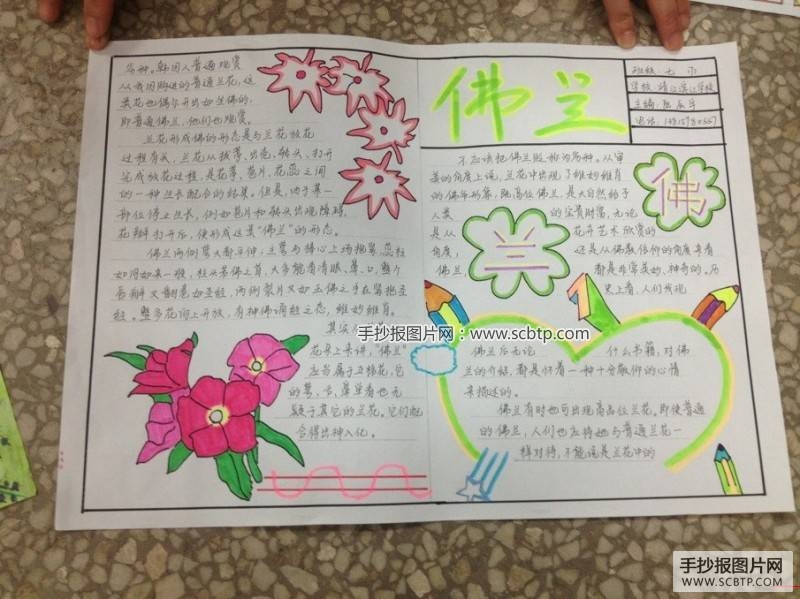 佛兰
班级:七
学校:
主编:
电话:
不应该把佛兰贬称为荡种。从审
美的角度上说,兰花中出现了维妙维肖
的佛年形象,既高位佛兰,是大自然给予
人类 的宝贵财富,无论
是从 花卉艺术欣赏的
角度, 还是从佛教信仰的角度来看
佛兰, 都是非常美妙、神奇的。历
史上看,人们发现
佛
兰
佛兰后无论 什么书籍,对佛
兰的介绍,都是怀着一种十分敬仰的心情
来描述的。
佛兰有时也可出现高品位兰花。即使普通
的佛兰,人们也应将她与普通兰花一
样对待,不能说是兰花中的
荡种。韩国人普遍观赏
从我国购进的普通兰花,这
类花也偶尔开出如兰佛的,
即普通佛兰,他们也观赏。
兰花形成佛的形态是与兰花放花
过程有关,兰花从拔葶、出苞、转头、打开
完成放花过程,是花葶、苞片、花蕊之间
的一种生长配合的结果。但是,由于某一
部位停止生长,例如苞片和转头出现障碍,
花瓣打开后,便形成这类“佛兰”的形态。
佛兰两侧萼大都平伸;
如同如来一般,柱头类佛之首,大多能看清眼、鼻、口,整个
唇瓣又酷息如圣经,两侧裂片又如五佛之手在紧抱圣
经。整多花向上开放,有神佛诵经之态,维妙维肖。
其实
花朵上来讲,“佛兰”
应当属于五瓣花,它
的萼、舌、鼻单看也无
疑于其它的兰花。它们配
合得出神入化。
手抄报图片网:www.scbtp.com
手抄报图片网
WWW.SCBTP.COM